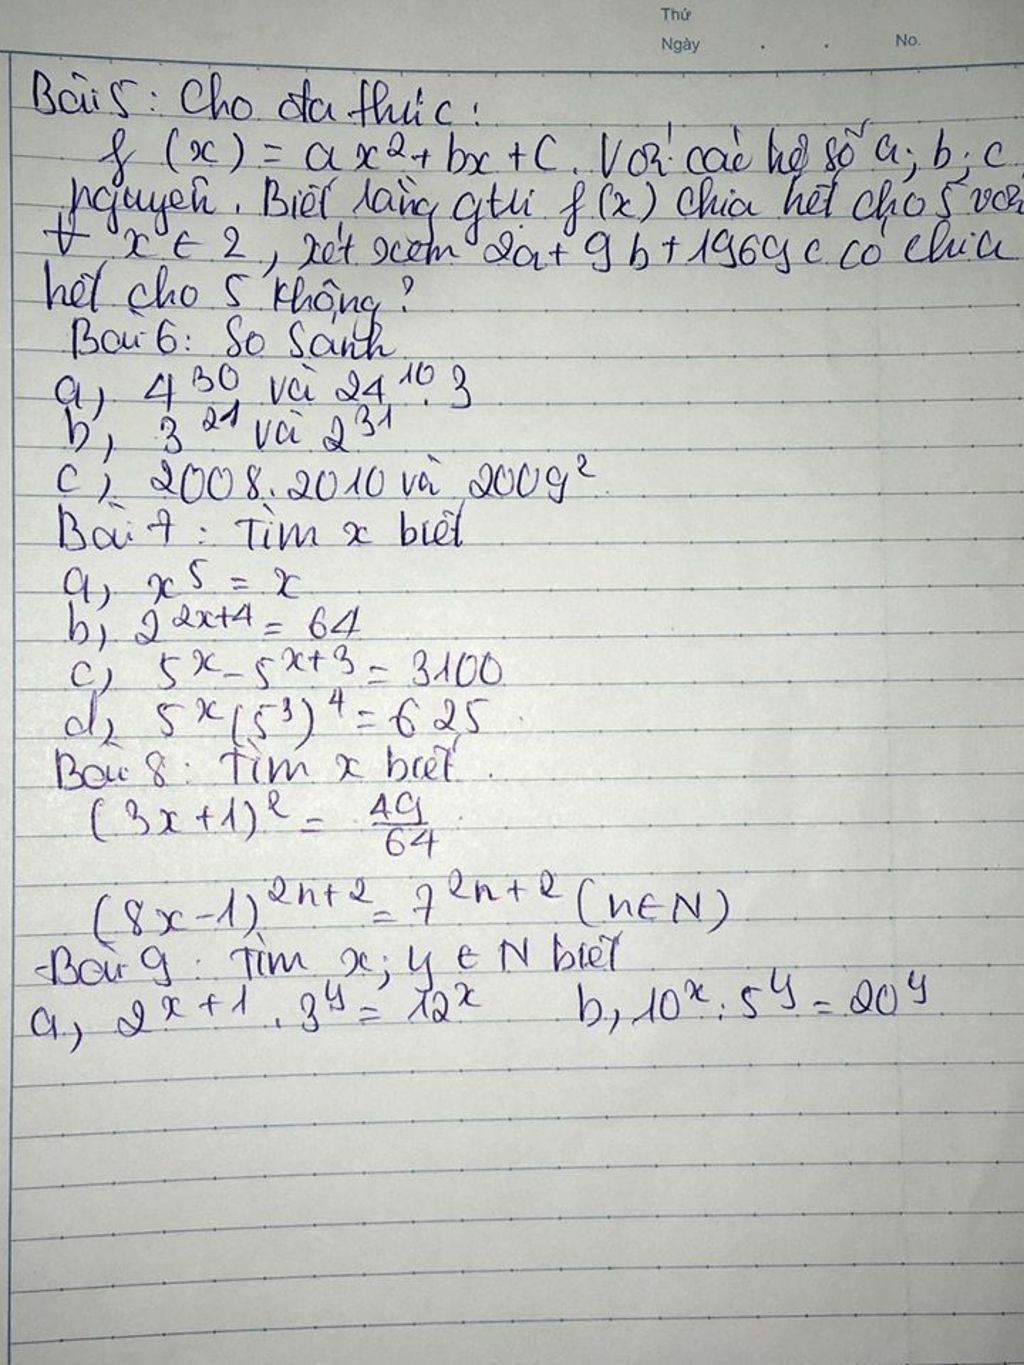 Thứ
Ngày . . No.
Bài 5: Cho đa thức:
f(x) = ax² + bx + c. Với các hệ số a; b; c
nguyên. Biết rằng gtrị f(x) chia hết cho 5 với
∀ x ∈ Z, xét xem 2a + 9b + 1969c có chia
hết cho 5 không?
Bài 6: So sánh
a, 4³⁰ và 24¹⁰.3
b, 3²¹ và 2³¹
c, 2008.2010 và 2009²
Bài 7: Tìm x biết
a, x⁵ = x
b, 2²ˣ⁺⁴ = 64
c, 5ˣ - 5ˣ⁺³ = 3100
d, 5ˣ(5³)⁴ = 625
Bài 8: Tìm x biết.
(3x+1)² = 49/64
(8x-1)²ⁿ⁺² = 7²ⁿ⁺² (n∈N)
-Bài 9: Tìm x; y ∈ N biết
a, 2ˣ⁺¹.3ʸ = 12ˣ b, 10ˣ:5ʸ = 20ʸ